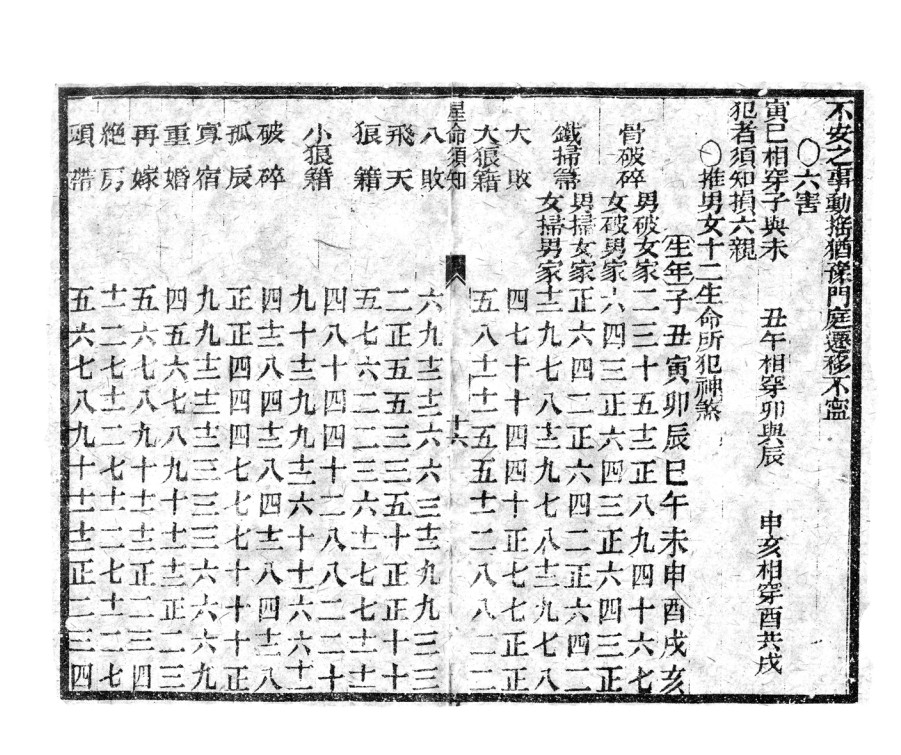 不安之事動搖猶豫門庭遷移不寧
〇六害
寅巳相穿子與未　丑午相穿卯與辰　申亥相穿酉共戌
犯者須知損六親
〇推男女十二生命所犯神煞
生年子丑寅卯辰巳午未申酉戌亥
骨破碎
男破女家二三十五十二正八九四十六七
女破男家六四三正六四三正六四三正
鐵掃箒
男掃女家正六四二正六四二正六四二
女掃男家十二九七八十二九七八十二九七八
大敗　四七十十四四十正七七正正
大狼籍　五八十一十一五五十一二八八二二
星命須知　十六
八敗　六九十二十二六六三十二九九三三
飛天　二正五五三三五十正正十十
狼籍　五七六二二三六十一七七十一十一
小狼籍
四八十四四十二八八二二十
九十十二九九十二六十十六六十一
破碎　四十二八四十二八四十二八四十二八
孤辰　正正四四四七七七十十十正
寡宿　九九十二十二十二三三三六六六九
重婚　四五六七八九十十一十二正二三
再嫁　五六七八九十十一十二正二三四
絕房　十一二七十一二七十一二七十一二七
頭帶　五六七八九十十一十二正二三四